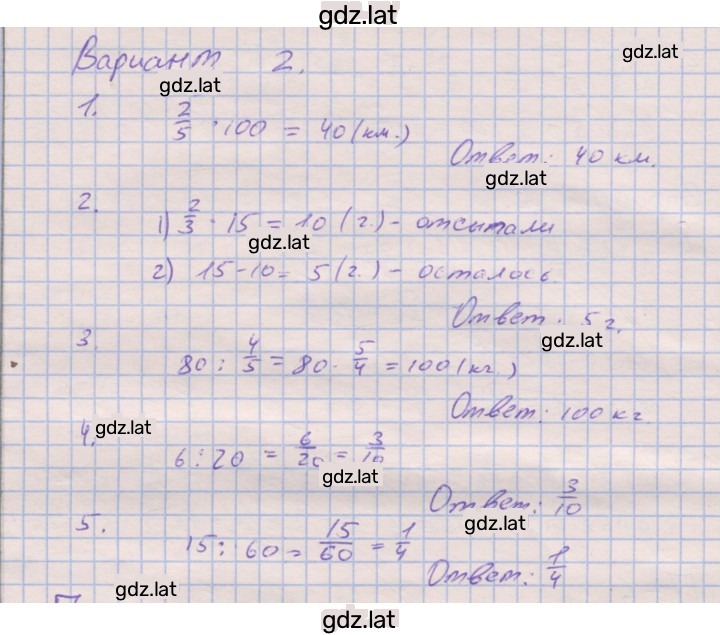 gdz.lat
Вариант 2.
gdz.lat
gdz.lat
1. 2/5 · 100 = 40 (км.)
Ответ: 40 км.
gdz.lat
2. 1) 2/3 · 15 = 10 (г.) - отсыпали
gdz.lat
2) 15 - 10 = 5 (г.) - осталось.
Ответ: 5 г.
gdz.lat
3. 80 : 4/5 = 80 · 5/4 = 100 (кг.)
Ответ: 100 кг.
gdz.lat
4. 6 : 20 = 6/20 = 3/10
gdz.lat
Ответ: 3/10
gdz.lat
5. 15 : 60 = 15/60 = 1/4
Ответ: 1/4
gdz.lat
gdz.lat